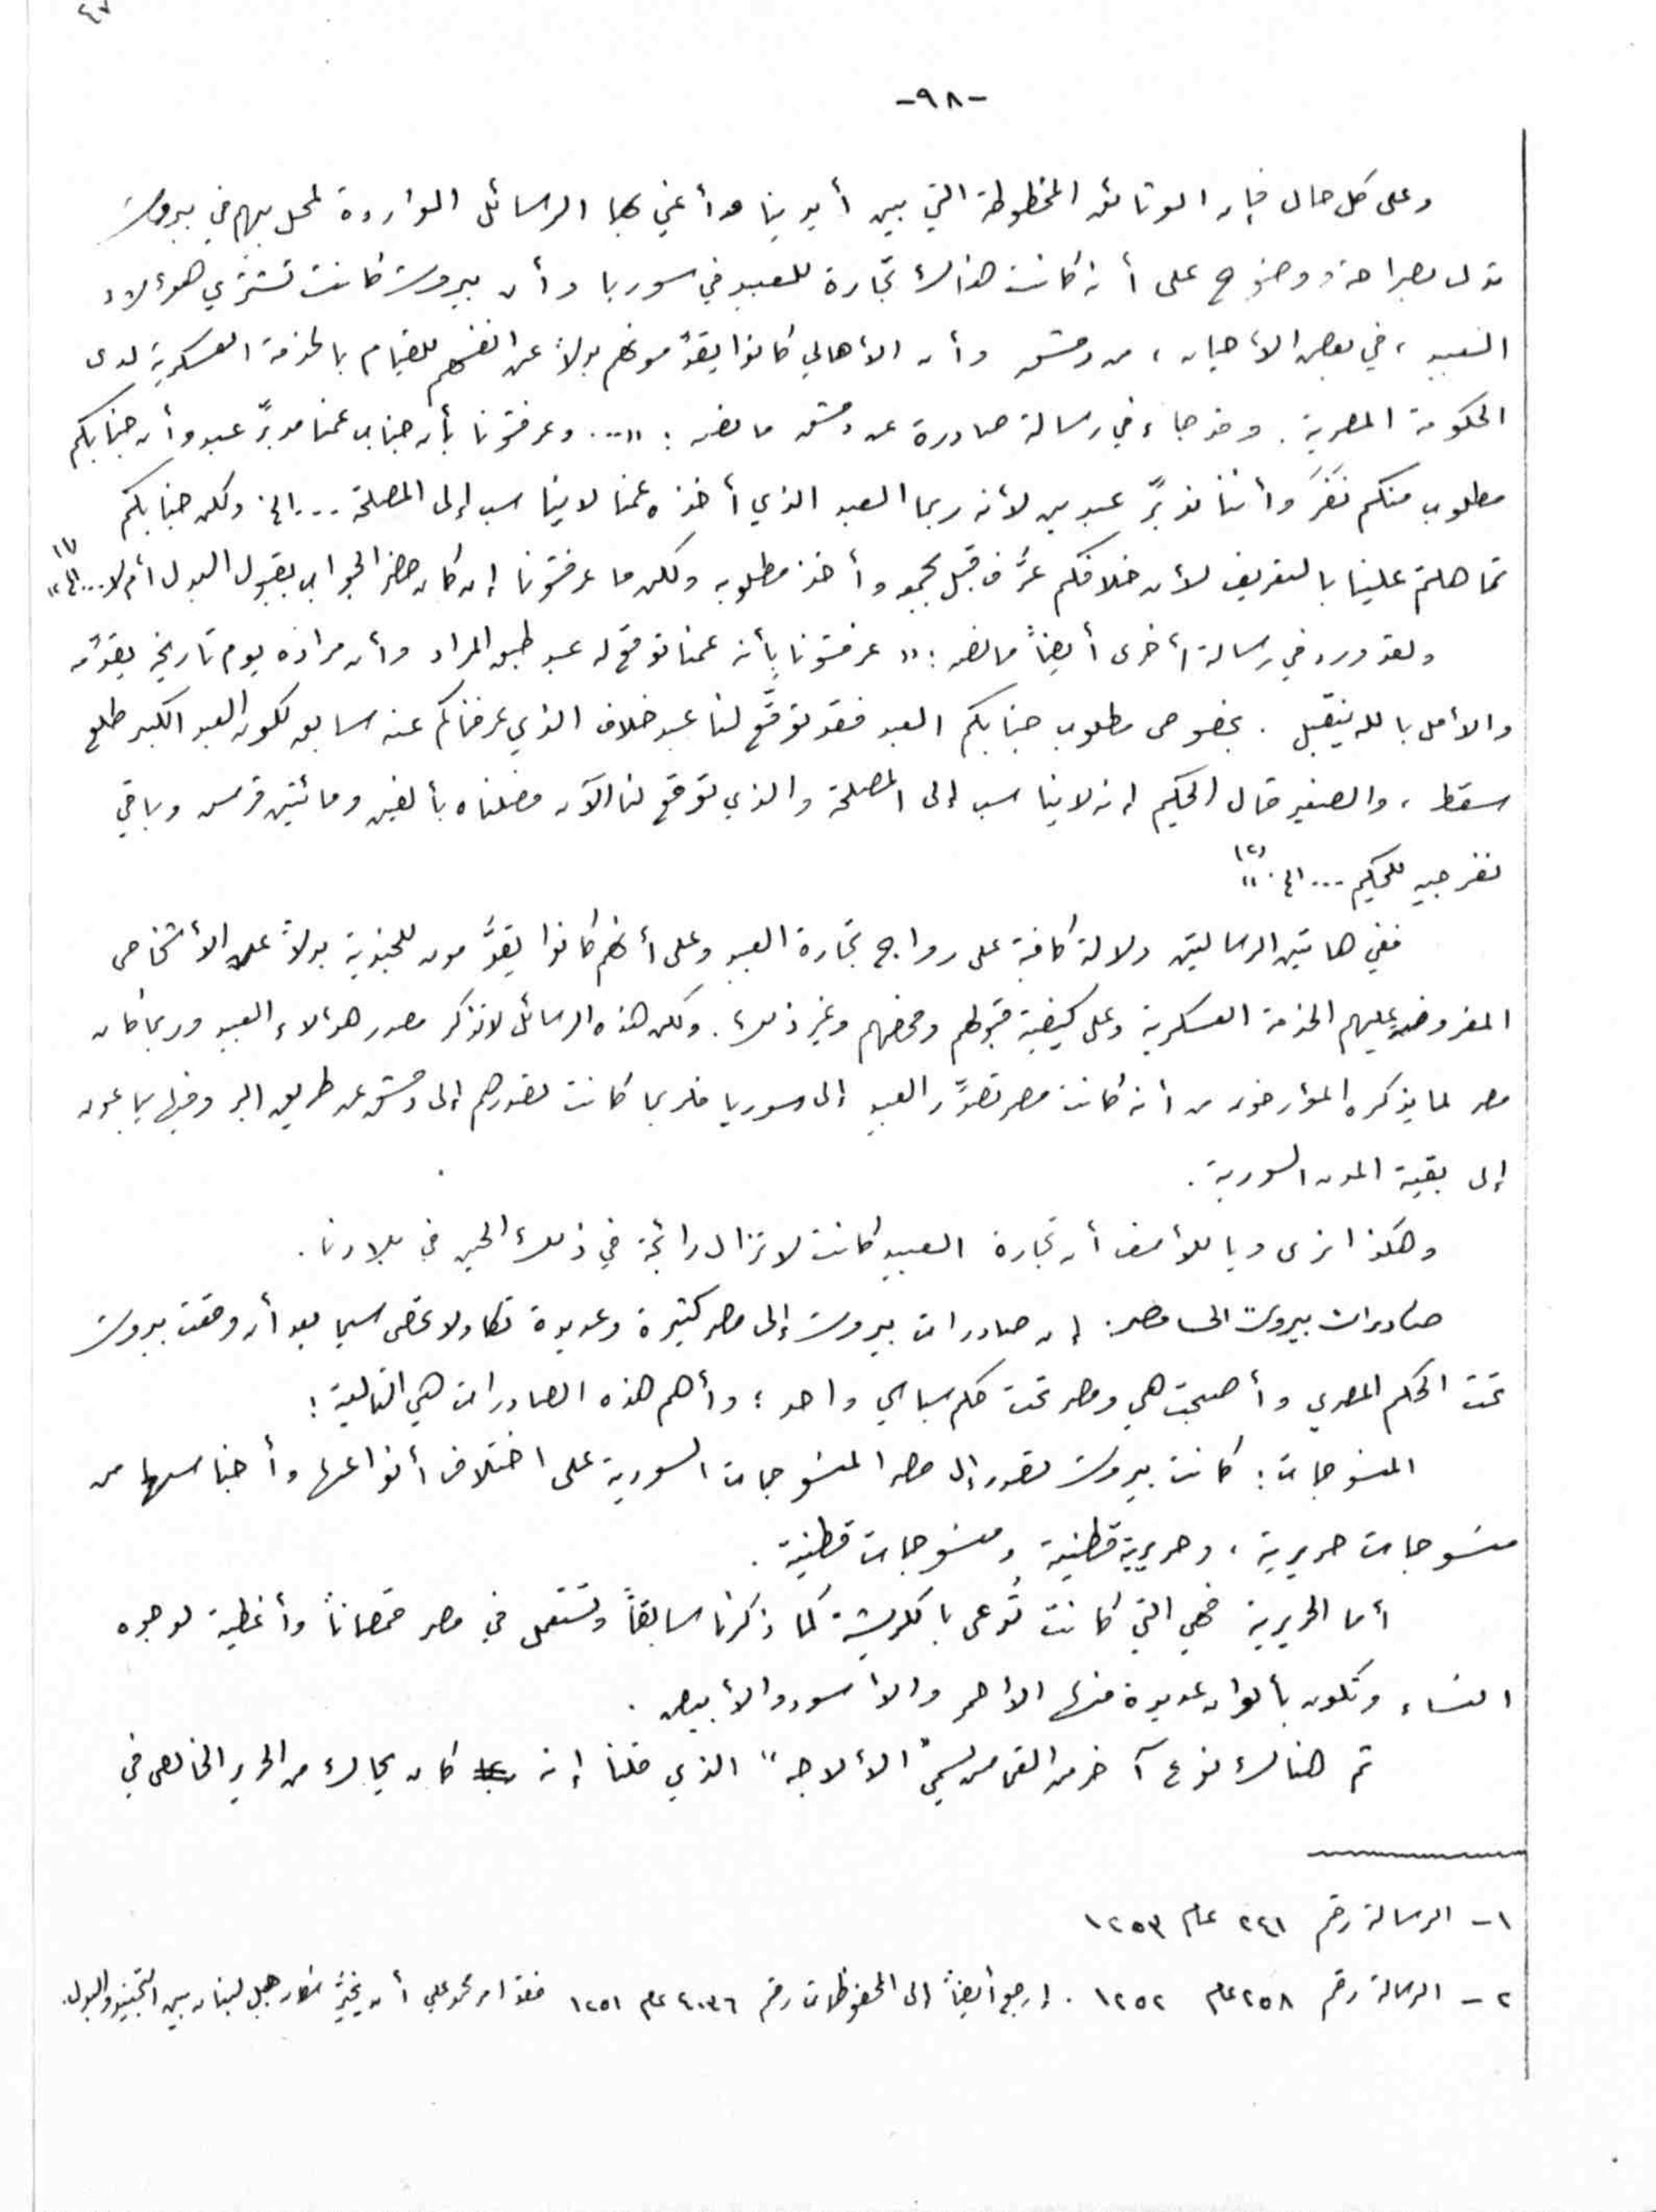 -٩٨-
وعلى كل حال فإن الوثائق المخطوطة التي بين أيدينا وأعني بها الرسائل الواردة لمحل بيهم في بيروت
تدل بصراحة ووضوح على أنه كانت هناك تجارة للعبيد في سوريا وأن بيروت كانت تشتري هؤلاء
العبيد ، في بعض الأحيان ، من دمشق وأن الأهالي كانوا يقدّمونهم بدلاً عن انفسهم للقيام بالخدمة العسكرية لدى
الحكومة المصرية . وقد جاء في رسالة صادرة عن دمشق ما نصه : "... وعرفتونا بأن جناب عمنا مدبّر عبد وأن جنابكم
مطلوب منكم نَفَر وأننا ندبّر عبدين لأنه ربما العبد الذي أخذه عمنا لا يناسب إلى المصلحة ... الخ ولكن جنابكم
تماهلتم علينا بالتعريف لأن خلافكم عرَّف قبل بجمعه وأخذ مطلوبه ولكن ما عرفتونا إن كان حضر الجواب بقبول البدل أم لا ... الخ" (١)
ولقد ورد في رسالة أخرى أيضاً ما نصه : " عرفتونا بأنه عمنا توقع له عبد طبق المراد وأن مراده يوم تاريخه يقدّمه
والأمل بالله ينقبل . بخصوص مطلوب جنابكم العبد فقد توقَّع لنا عبد خلاف الذي عرفناكم عنه سابق لكون العبد الكبير طلع
سقط ، والصغير قال الحكيم انه لا يناسب إلى المصلحة والذي توقع لنا الآن فصلناه بألفين ومائتين قرش وباقي
نفرجيه للحكيم ... الخ ." (٢)
ففي هاتين الرسالتين دلالة كافية على رواج تجارة العبيد وعلى أنهم كانوا يقدَّمون للجندية بدلاً عن الأشخاص
المفروضة عليهم الخدمة العسكرية وعلى كيفية قبولهم وفحصهم وغير ذلك . ولكن هذه الرسائل لا تذكر مصدر هؤلاء العبيد وربما كان
مصر لما يذكره المؤرخون من أنه كانت مصر تصدِّر العبيد إلى سوريا فلربما كانت تصدرهم إلى دمشق عن طريق البر وفيها يباعون
إلى بقية المدن السورية .
وهكذا نرى ويا للأسف أن تجارة العبيد كانت لا تزال رائجة في ذلك الحين في بلادنا .
صادرات بيروت الى مصر: إن صادرات بيروت إلى مصر كثيرة وعديدة تكاد لا تحصى سيما بعد أن وقعت بيروت
تحت الحكم المصري وأصبحت هي ومصر تحت حكم سياسي واحد ؛ وأهم هذه الصادرات هي التالية :
المنسوجات : كانت بيروت تصدر إلى مصر المنسوجات السورية على اختلاف أنواعها وأجناسها من
منسوجات حريرية ، وحريرية قطنية ، ومنسوجات قطنية .
أما الحريرية فهي التي كانت تُدعى بالكريشة كما ذكرنا سابقاً وتستعمل في مصر قمصاناً وأغطية لوجوه
النساء وتكون بألوان عديدة منها الاحمر والاسود والأبيض .
ثم هنالك نوع آخر من القماش يسمى "الألاجه" الذي قلنا إنه كان يحاك من الحرير الخالص في
١- الرسالة رقم ٢٤١ عام ١٢٥٣
٢- الرسالة رقم ٢٥٨ عام ١٢٥٢ . إرجع أيضاً إلى المحفوظات رقم ٤٠٣٦ عام ١٢٥١ فقد امر محمد علي أن يخيَّر نصارى جبل لبنان بين التجنيد والبدل.